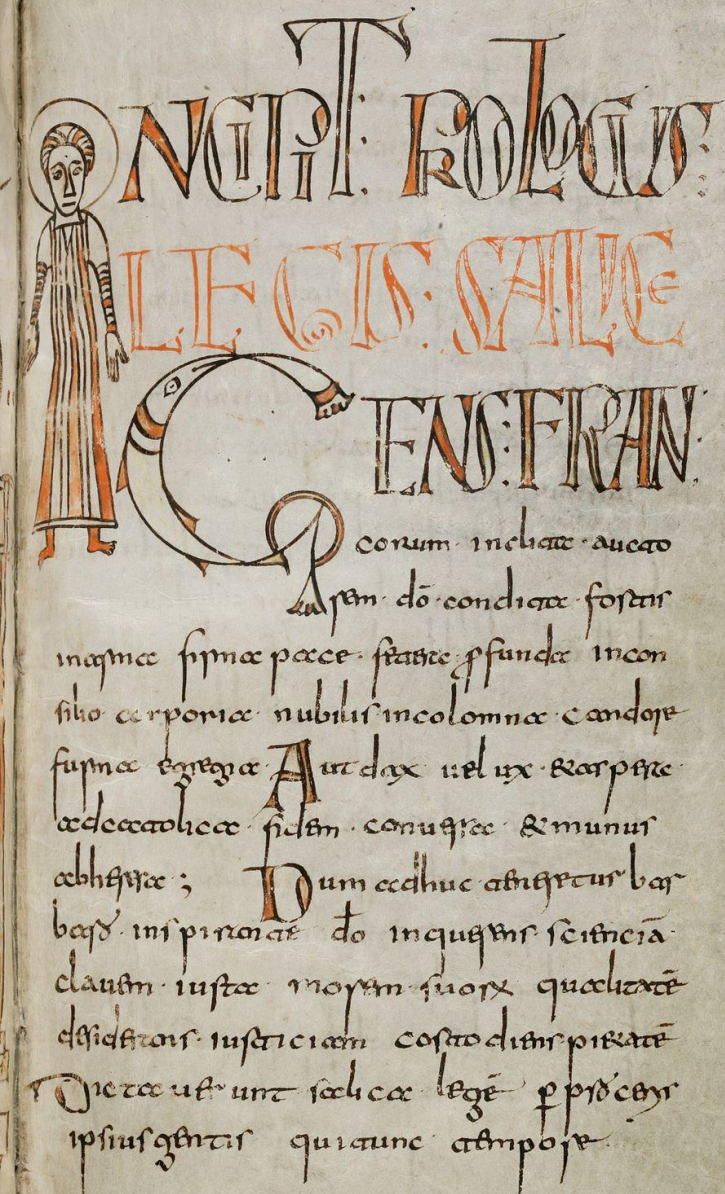 INCIPIT: PROLOGUS:
LEGIS: SALICE
GENS: FRAN
corum · inclita · aucto
rem · dō · condita · fortis
in arma firma pace · fetere ꝓfunda in con
silio corporia nubilis incolomna candore
furma egregia · Audax uelux · & aspere ·
ad catolica fidem · conuersa · & munus
ab herra ; Dum adhuc teneretur bar
barꝰ · inspirante dō inquerens · scienciā ·
clauem · iusta morem · suorꝝ qualitatē
desiderans · iusticiam costodiens pietatē
Dictauerunt salica legē ꝑ prꝰceris
ipsius gentis qui tunc tempore ·